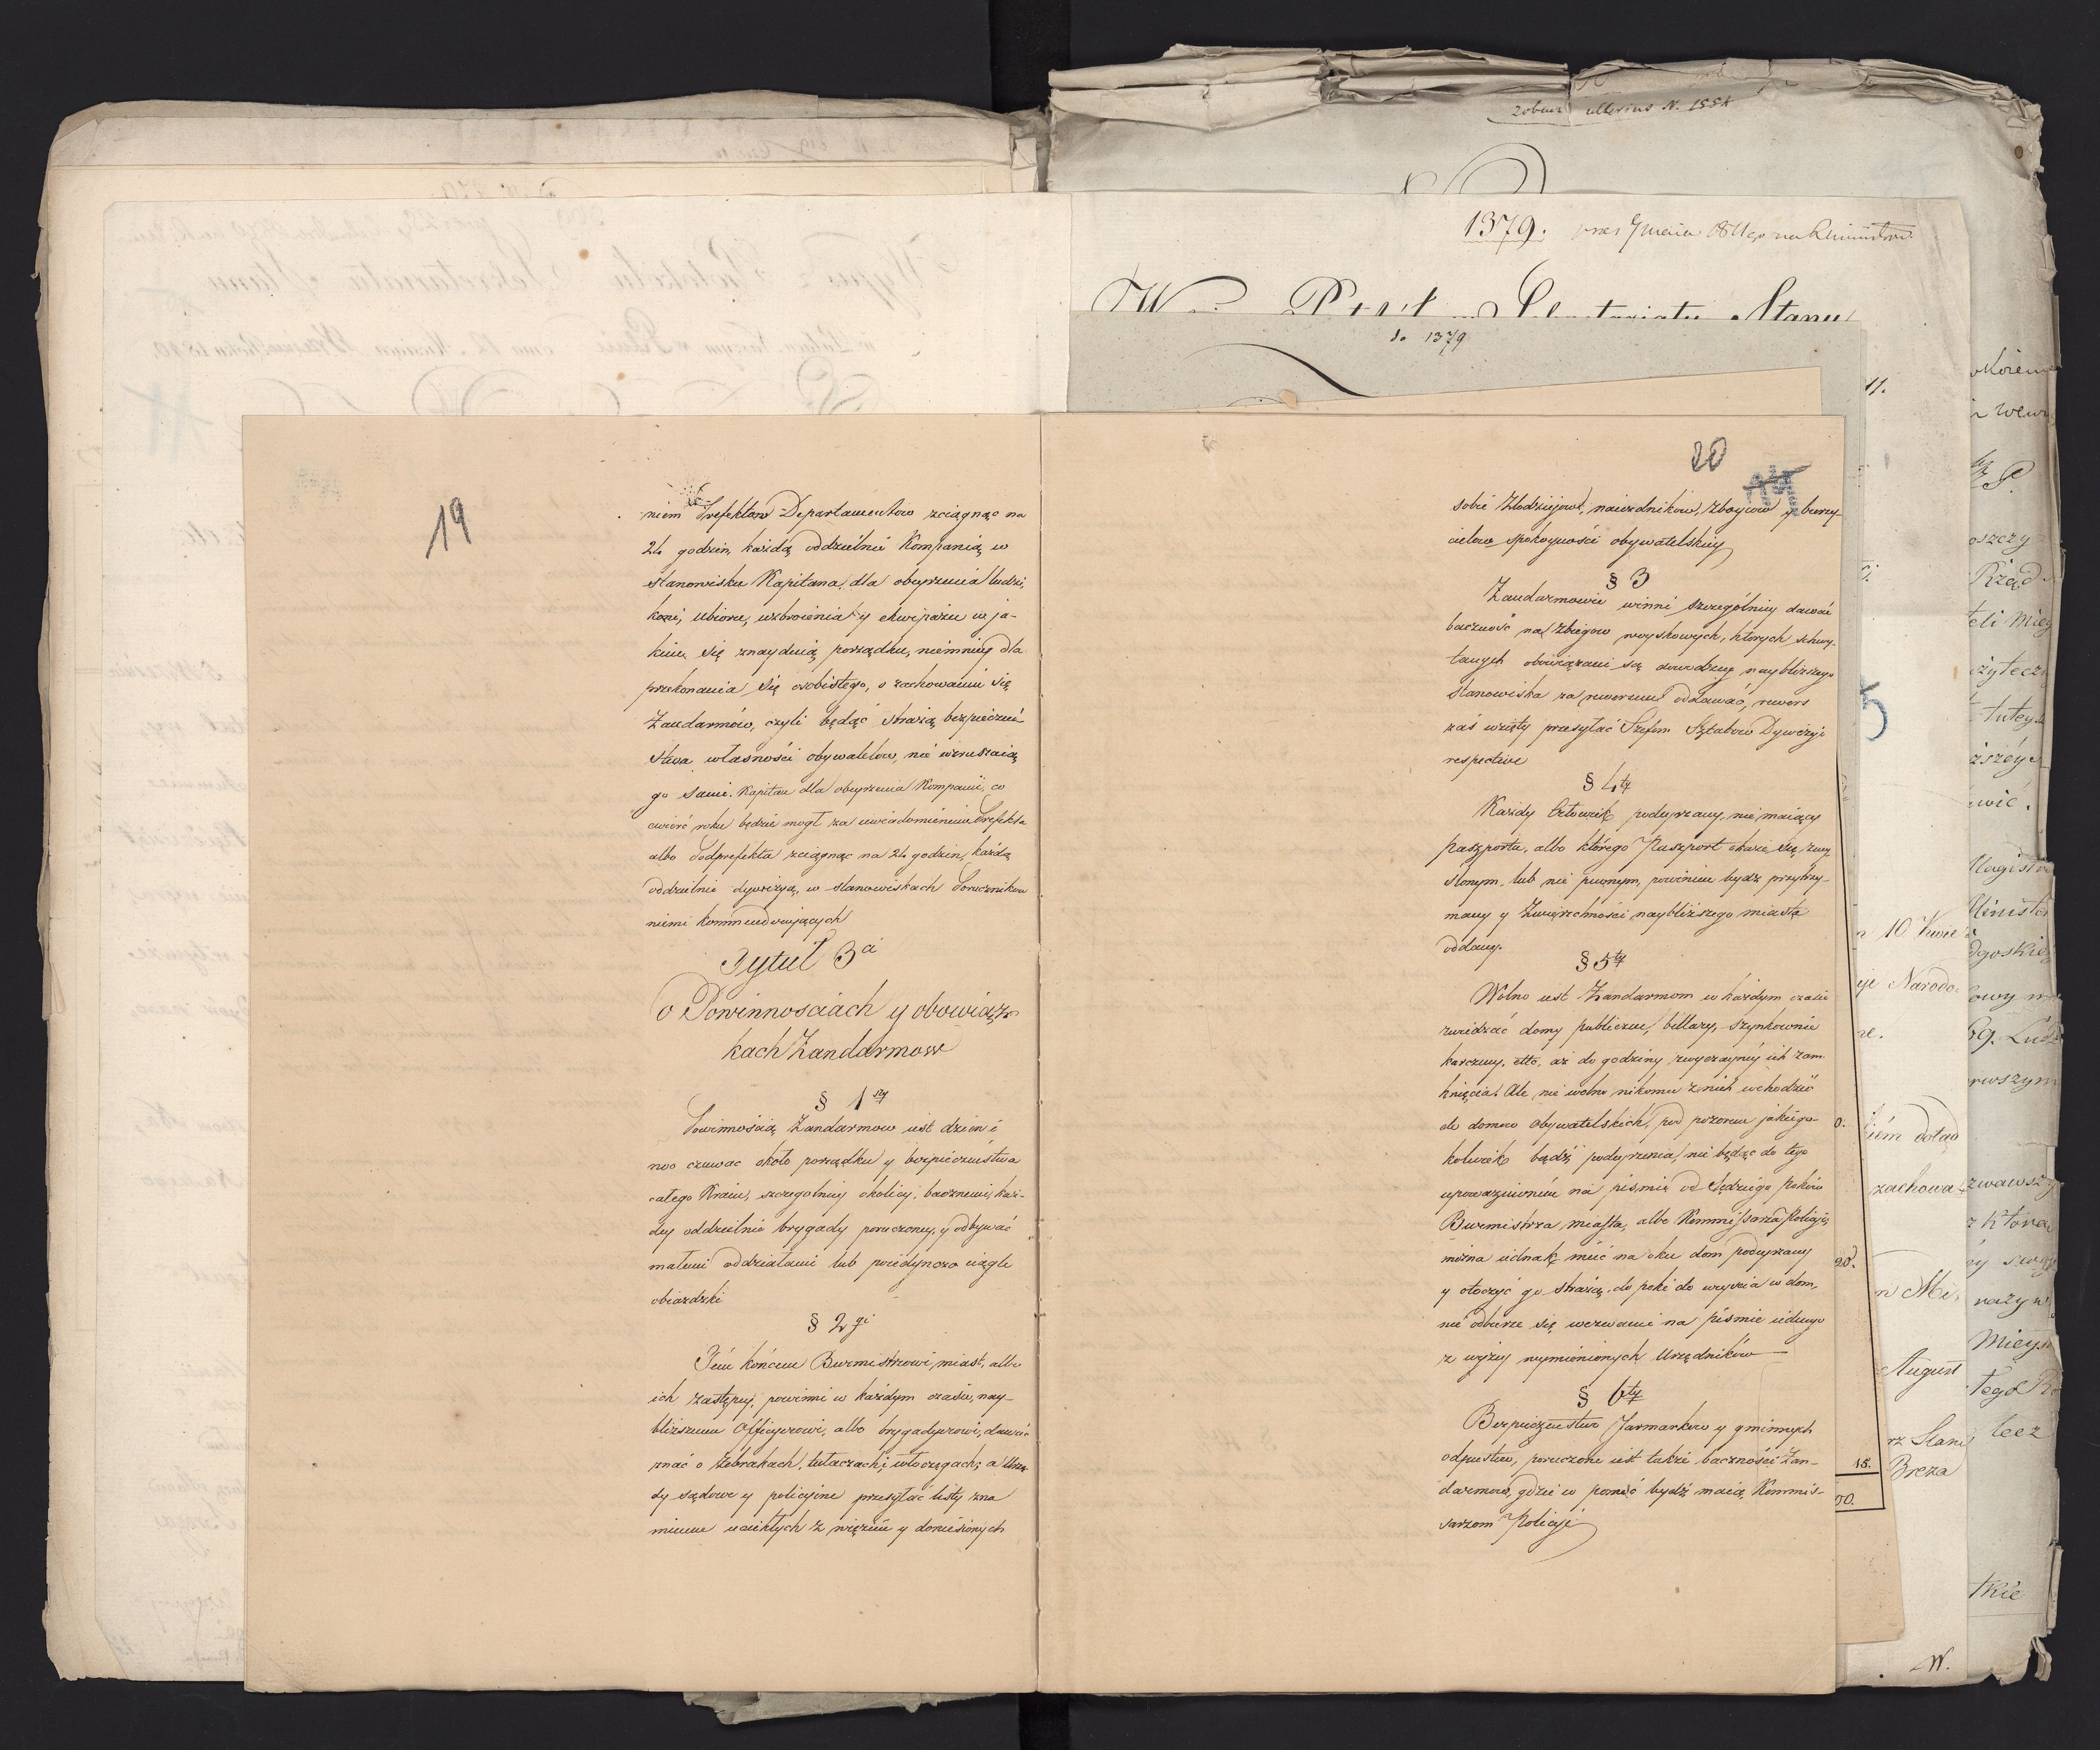 zobacz ulterius N. 1554
1379.
do 1379
19
niem Prefektow Departamentow zciągnąc na
24 godzin, każdą oddzielnie Kompanią w
stanowisku Kapitana, dla obeyrzenia ludzi,
koni, ubioru, uzbroienia y ekwipażu w ja-
kim się znayduią porządku, niemniey dla
przekonania się osobistego, o zachowaniu się
Żandarmów, czyli będąc strażą bezpieczeń
stwa własności obywatelow, nie wzruszaią
go sami. Kapitan dla obeyrzenia Kompanii, co
cwierć roku będzie mogł za uwiadomieniem Prefekta
albo Podprefekta zciągnąc na 24 godzin, każdą
oddzielnie dywizyą, w stanowiskach Porucznikow
niemi kommenderujących
Tytuł 3ci
o Powinnosciach y obowiąz-
kach Żandarmow
§ 1szy
Powinnością Żandarmow iest dzien i
noc czuwac około porządku y bezpieczeństwa
całego Kraiu, szczegolniey okolicy, baczności, każ-
dey oddzielnie brygady poruczoney, y odbywać
małemi oddziałami lub poiedynczo ciągłe
obiazdzki
§ 2gi
Tém końcem Burmistrzowie miast, albo
ich zastępcy, powinni w każdym czasie, nay-
bliższemu Officyerowi, albo brygadyerowi, dawać
znać o żebrakach, tułaczach, i włoczęgach; a Urzę
dy sądowe y policyine przesyłać listy zna
mienne uciekłych z więzień y doniesionych
20
sobie Złodziejow, naiezdnikow, Zboycow y burzy-
cielow spokoyności obywatelskiey
§ 3
Żandarmowie winni szczególniey dawać
baczność na Zbiegow woyskowych, ktorych schwy-
tanych obowiązani są dowodzcy naybliższego
stanowiska za rewersem oddawać, rewers
zaś wzięty przesyłać Szefom Sztabow Dywizyi
respective
§ 4ty
Kazdy Człowiek podeyrzany, nie maiący
paszportu, albo którego Paszport okaże się zmy
slonym, lub nie pewnym, powinien bydz przytrzy-
many y Zwierzchności naybliższego miasta
oddany.
§ 5ty
Wolno iest Żandarmom w każdym czasie
zwiedzać domy publiczne, billary, szynkownie
karczmy, ettc, aż do godziny zwyczayney ich zam-
knięcia. Ale nie wolno nikomu z nich wchodzić
do domow obywatelskich, pod pozorem jakiego-
kolwiek bądź podeyrzenia, nie będąc do tego
upoważnionem na piśmie od Sędziego pokoiu
Burmistrza, miasta, albo Kommissarza Policyi,
można iednak mieć na oku dom podeyrzany
y otoczyć go strażą, do poki do weyscia w dom,
nie odbierze się wezwanie na piśmie iednego
z wyżey wymienionych Urzędników
§ 6ty
Bezpieczeństwo Jarmarkow y gminnych
odpustow, poruczone iest także baczności Żan-
darmow, gdzie w pomoc bydź maią, Kommis-
sarzom Policyi
10 Kwie
Narodo-
dotąd
zachowa-
August
Breza
W.